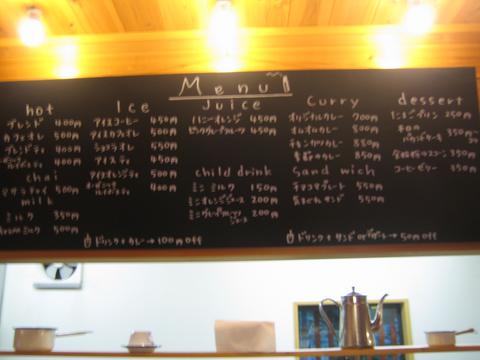 Menu
hot
ブレンド 400円
カフェオレ 500円
ブレンドティ 400円
400円
chai
マサラチャイ 500円
milk
ミルク 350円
ミルク 500円
Ice
アイスコーヒー 450円
アイスカフェオレ 500円
ショコラオレ 550円
アイスティ 450円
アイスオレンジティ 500円
オーガニック
ルイボスティ 400円
Juice
ハニーオレンジ 450円
ピンクグレープフルーツ 450円
child drink
ミニミルク 150円
ミニオレンジジュース 200円
ミニグレープフルーツ
ジュース 200円
Curry
オリジナルカレー 700円
オムオムカレー 800円
チキンカツカレー 850円
季節のカレー 850円
Sand wich
チキントマトプレート 550円
気まぐれサンド 550円
dessert
たまごプリン 250円
本日の
パウンドケーキ 350円
スコーン 350円
コーヒーゼリー 350円
ドリンク+カレー→100円off
ドリンク+サンドorデザート→50円off